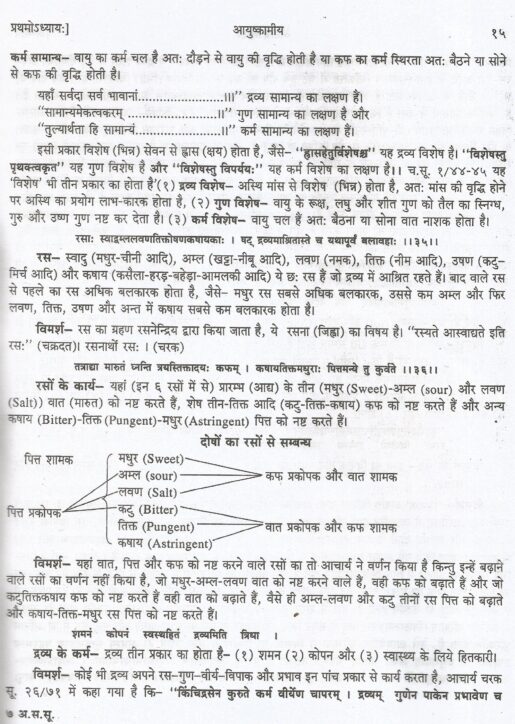 प्रथमोऽध्यायः] आयुष्कामीय १५
कर्म सामान्य– वायु का कर्म चल है अतः दौड़ने से वायु की वृद्धि होती है या कफ का कर्म स्थिरता अतः बैठने या सोने
से कफ की वृद्धि होती है।
यहाँ सर्वदा सर्व भावानां........................।।।” द्रव्य सामान्य का लक्षण हैं।
“सामान्यमेकत्वकरम् ........................।।” गुण सामान्य का लक्षण है और
“तुल्यार्थता हि सामान्यं........................।।” कर्म सामान्य का लक्षण हैं।
इसी प्रकार विशेष (भिन्न) सेवन से ह्रास (क्षय) होता है, जैसे– “ह्रासहेतुर्विशेषश्च” यह द्रव्य विशेष है। “विशेषस्तु
पृथक्त्वकृत” यह गुण विशेष है और “विशेषस्तु विपर्ययः” यह कर्म विशेष का लक्षण है।। च.सू. १/४४-४५ यह
‘विशेष’ भी तीन प्रकार का होता है’(१) द्रव्य विशेष– अस्थि मांस से विशेष (भिन्न) होता है, अतः मांस की वृद्धि होने
पर अस्थि का प्रयोग लाभ-कारक होता है, (२) गुण विशेष– वायु के रूक्ष, लघु और शीत गुण को तैल का स्निग्ध,
गुरु और उष्ण गुण नष्ट कर देता है। (३) कर्म विशेष– वायु चल हैं अतः बैठना या सोना वात नाशक होता है।
रसाः स्वाद्वम्ललवणतिक्तोषणकषायकाः । षड् द्रव्यमाश्रितास्ते च यथापूर्वं बलावहाः ।।३५।।
रस– स्वादु (मधुर-चीनी आदि), अम्ल (खट्टा-नीबू आदि), लवण (नमक), तिक्त (नीम आदि), उषण (कटु-
मिर्च आदि) और कषाय (कसैला-हरड़-बहेड़ा-आमलकी आदि) ये छः रस हैं जो द्रव्य में आश्रित रहते हैं। बाद वाले रस
से पहले का रस अधिक बलकारक होता है, जैसे– मधुर रस सबसे अधिक बलकारक, उससे कम अम्ल और फिर
लवण, तिक्त, उषण और अन्त में कषाय सबसे कम बलकारक होता है।
विमर्श– रस का ग्रहण रसनेन्द्रिय द्वारा किया जाता है, ये रसना (जिह्वा) का विषय है। “रस्यते आस्वाद्यते इति
रसः” (चक्रदत)। रसनार्थो रसः । (चरक)
तत्राद्या मारुतं घ्नन्ति त्रयस्तिक्तादयः कफम् । कषायतिक्तमधुराः पित्तमन्ये तु कुर्वते ।।३६।।
रसों के कार्य– यहां (इन ६ रसों में से) प्रारम्भ (आद्य) के तीन (मधुर(Sweet)-अम्ल (sour) और लवण
(Salt)) वात (मारुत) को नष्ट करते हैं, शेष तीन-तिक्त आदि (कटु-तिक्त-कषाय) कफ को नष्ट करते हैं और अन्य
कषाय (Bitter)-तिक्त (Pungent)-मधुर(Astringent) पित्त को नष्ट करते हैं।
दोषों का रसों से सम्बन्ध
पित्त शामक मधुर (Sweet)
अम्ल (sour) कफ प्रकोपक और वात शामक
लवण (Salt)
पित्त प्रकोपक कटु (Bitter)
तिक्त (Pungent) वात प्रकोपक और कफ शामक
कषाय (Astringent)
विमर्श– यहां वात, पित्त और कफ को नष्ट करने वाले रसों का तो आचार्य ने वर्णन किया है किन्तु इन्हें बढ़ाने
वाले रसों का वर्णन नहीं किया है, जो मधुर-अम्ल-लवण वात को नष्ट करने वाले हैं, वही कफ को बढ़ाते हैं और जो
कटुतिक्तकषाय कफ को नष्ट करते हैं वही वात को बढ़ाते हैं, वैसे ही अम्ल-लवण और कटु तीनों रस पित्त को बढ़ाते
और कषाय-तिक्त-मधुर रस पित्त को नष्ट करते हैं।
शमनं कोपनं स्वस्थहितं द्रव्यमिति त्रिधा ।
द्रव्य के कर्म– द्रव्य तीन प्रकार का होता है– (१) शमन (२) कोपन और (३) स्वास्थ्य के लिये हितकारी।
विमर्श– कोई भी द्रव्य अपने रस-गुण-वीर्य-विपाक और प्रभाव इन पांच प्रकार से कार्य करता है, आचार्य चरक
सू. २६/७१ में कहा गया है कि– “किंचिद्रसेन कुरुते कर्म वीर्येण चापरम् । द्रव्यम् गुणेन पाकेन प्रभावेण च
७ अ.स.सू.